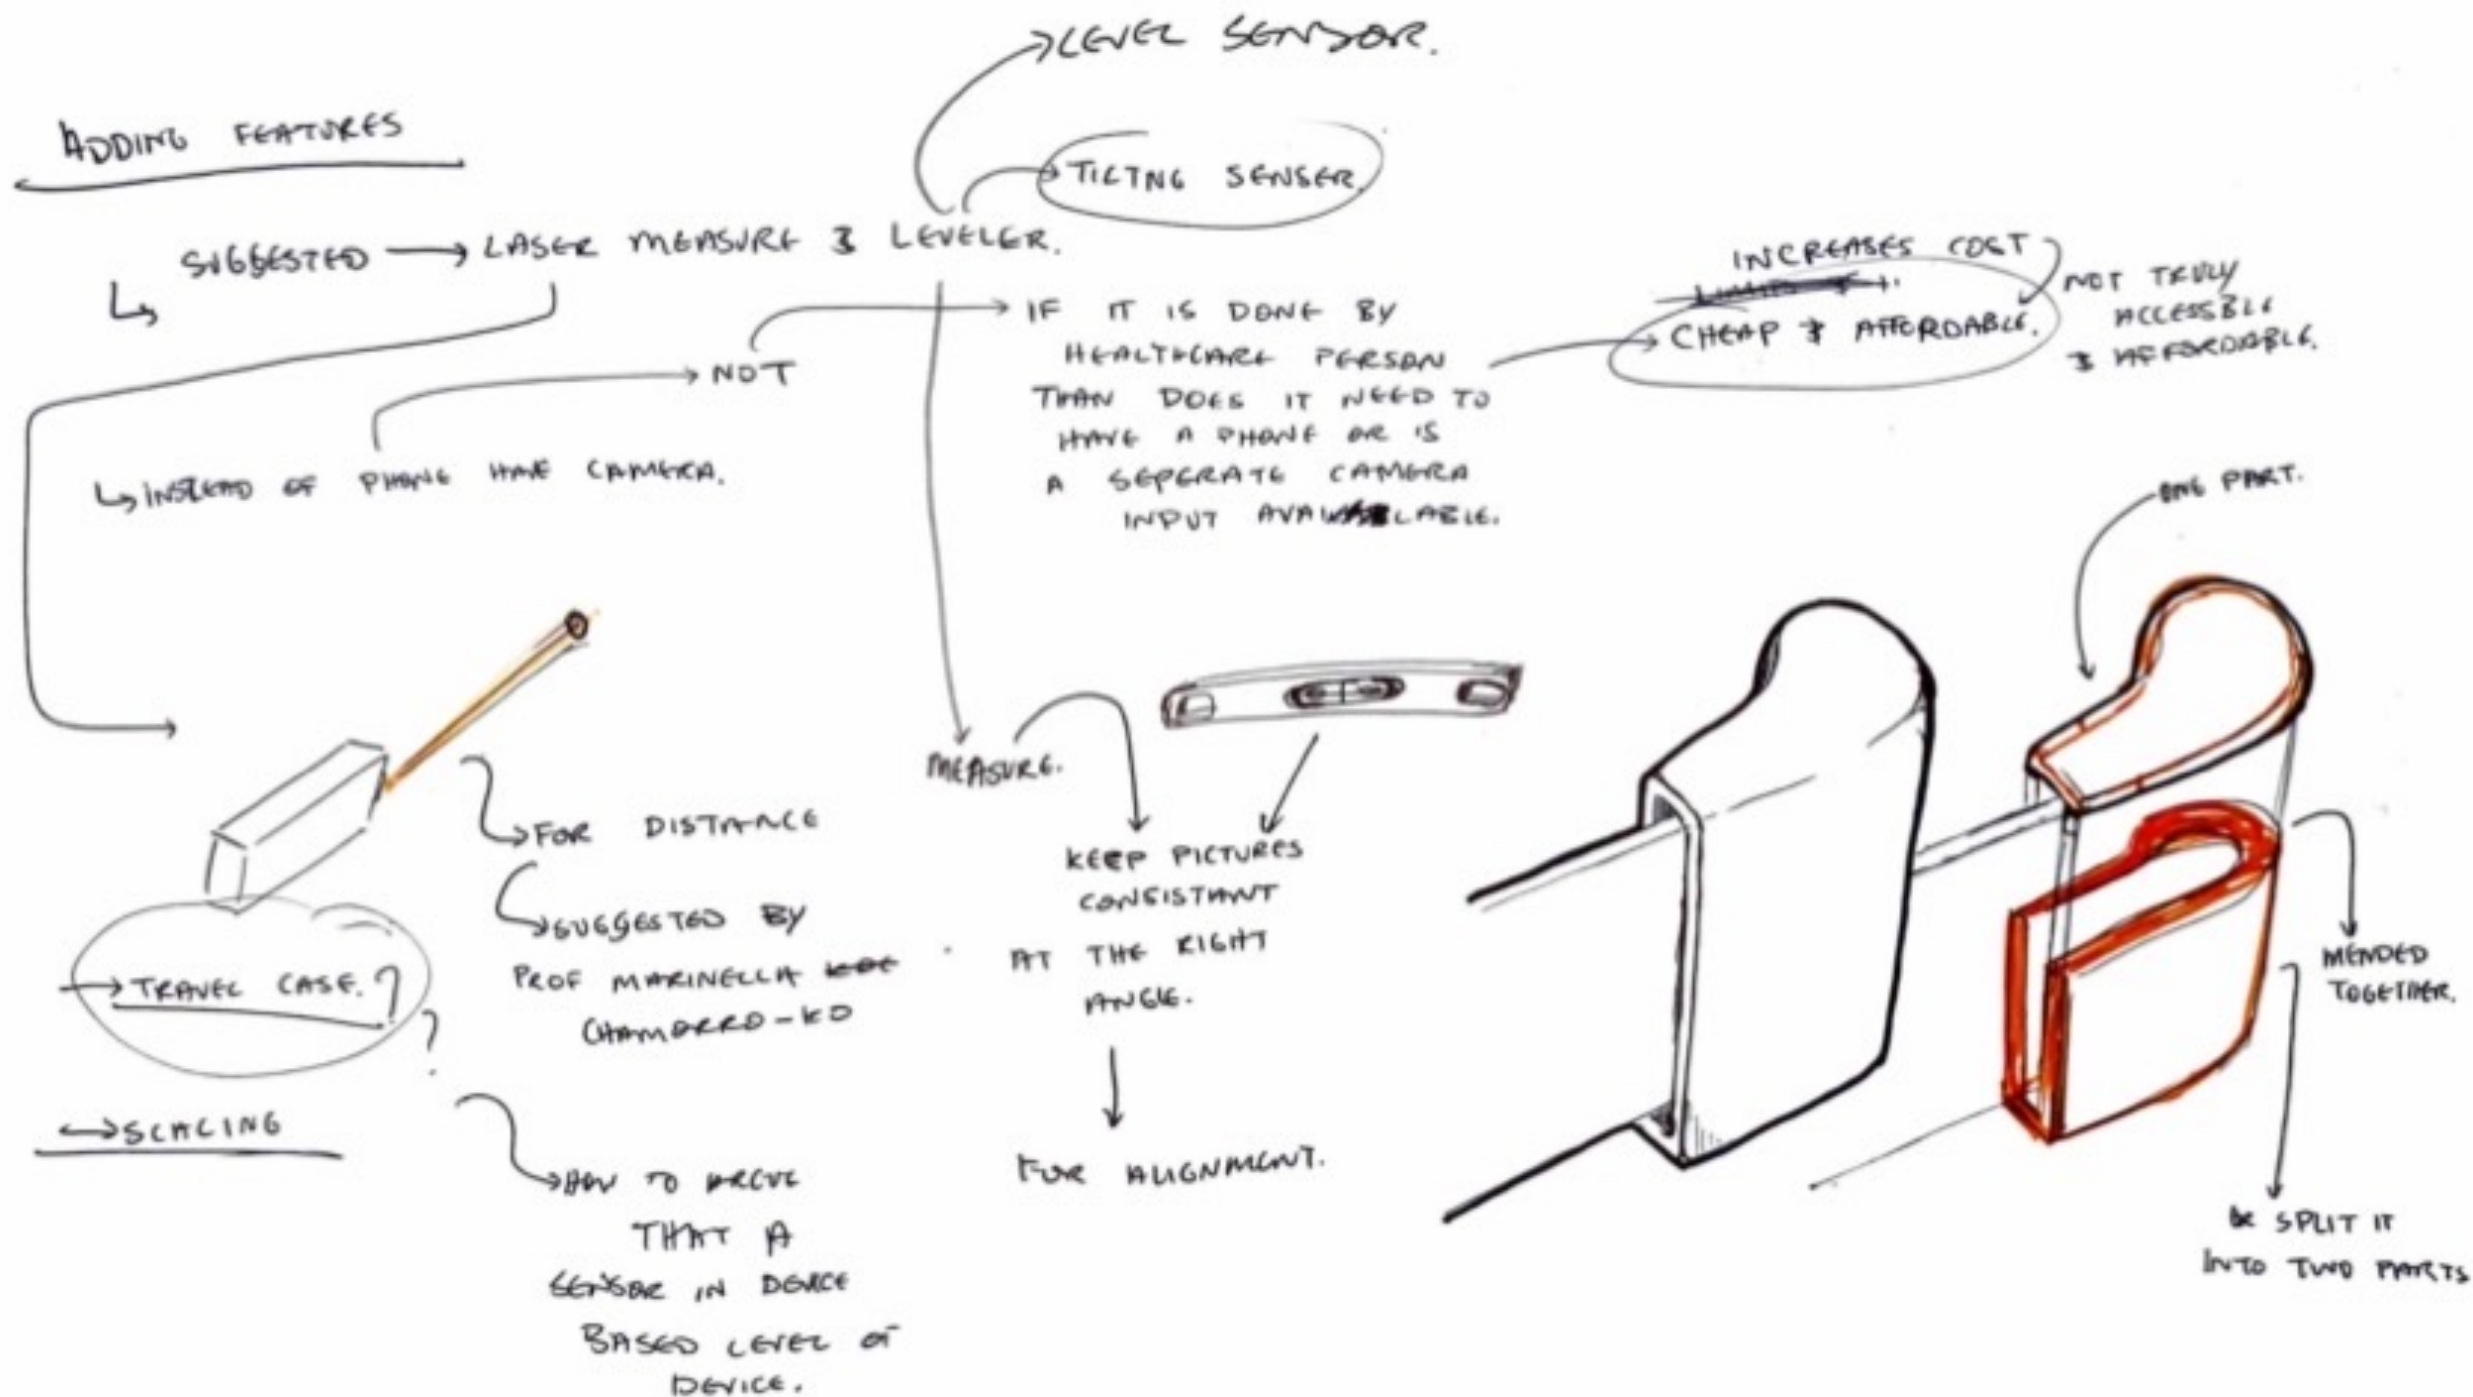 LEVEL SENSOR.
ADDING FEATURES
TILTNG SENSER.
SUGGESTED → LASER MEASURE & LEVELER.
INCREASES COST
NOT TRULY
ACCESSBLE
& AFFORDABLE.
CHEAP & AFFORDABLE.
IF IT IS DONE BY
HEALTHCARE PERSON
THAN DOES IT NEED TO
HAVE A PHONE OR IS
A SEPERATE CAMERA
INPUT AVAILABLE.
NOT
INSTEAD OF PHONE HAVE CAMERA.
ONE PART.
MEASURE.
FOR DISTANCE
SUGGESTED BY
PROF MARINELLA
CHAMORRO-KO
KEEP PICTURES
CONSISTANT
AT THE RIGHT
ANGLE.
FOR ALIGNMENT.
TRAVEL CASE.?
?
SCALING
HOW TO
THAT A
SENSOR IN DEVICE
BASED LEVEL OF
DEVICE.
MENDED
TOGETHER.
SPLIT IT
INTO TWO PARTS